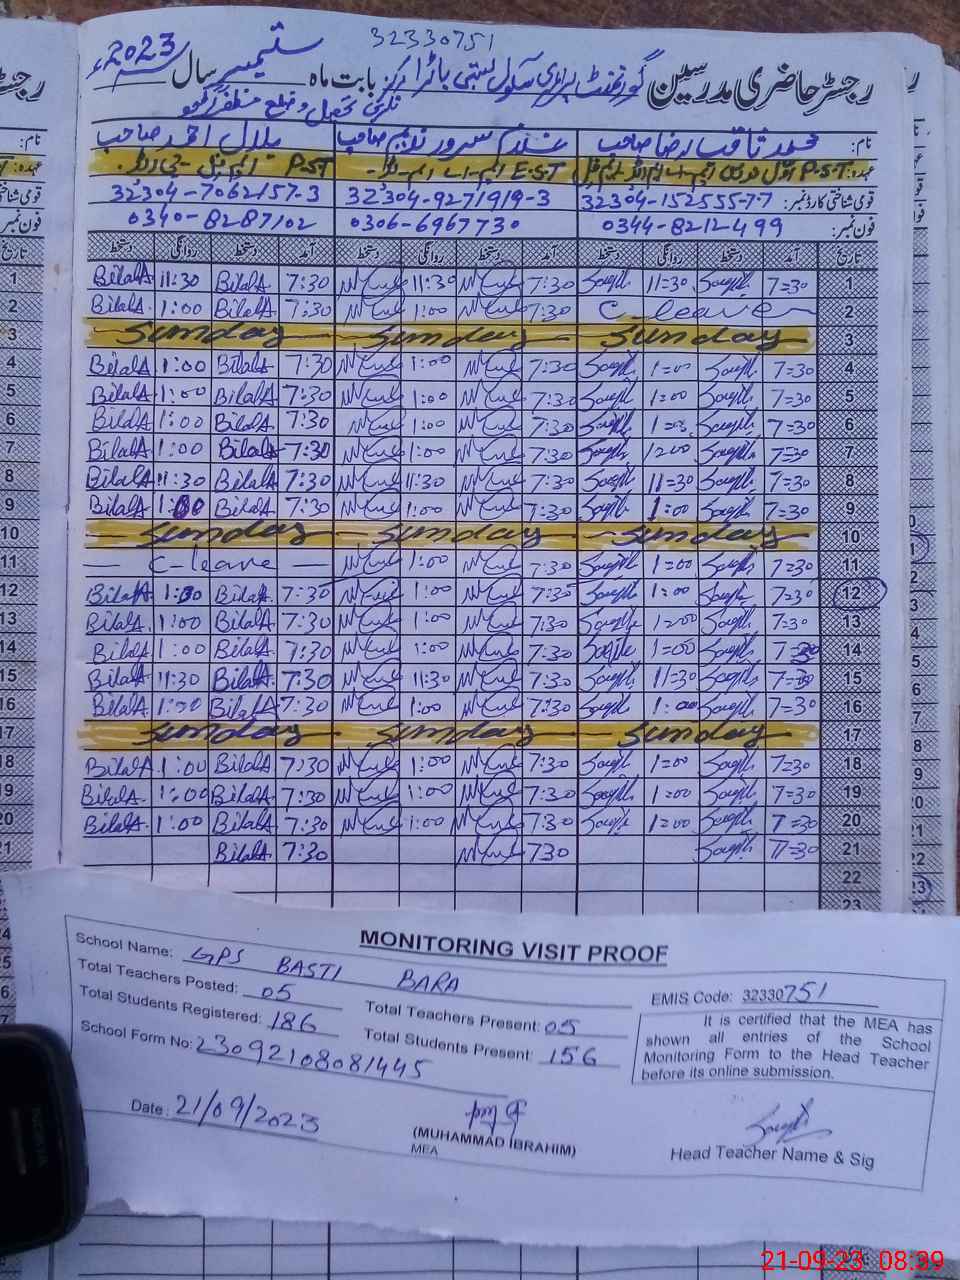 32330751
رجسٹر حاضری مدرسین گورنمنٹ پرائمری سکول بستی باڑا مرکز بابت ماہ ستمبر سال 2023ء
تحصیل و ضلع مظفرگڑھ
نام: محمد ثاقب رضا صاحب غلام سرور ندیم صاحب بلال احمد صاحب
عہدہ: P.S.T E.S.T P.S.T
قومی شناختی کارڈ نمبر: 32304-152555-7-7 32304-9271919-3 32304-7062157-3
فون نمبر: 0344-8212499 0306-6967730 0340-8287102
تاریخ آمد دستخط روانگی دستخط آمد دستخط روانگی دستخط آمد دستخط روانگی دستخط تاریخ
1 BilalA 11:30 BilalA 7:30 11:30 7:30 11=30 7=30 1
2 BilalA 1:00 BilalA 7:30 1:00 7:30 C-leave 2
3 Sunday Sunday Sunday 3
4 BilalA 1:00 BilalA 7:30 1:00 7:30 1=00 7=30 4
5 BilalA 1:00 BilalA 7:30 1:00 7:30 1=00 7=30 5
6 BilalA 1:00 BilalA 7:30 1:00 7:30 7=30 6
7 BilalA 1:00 BilalA 7:30 1:00 7:30 1=00 7=30 7
8 BilalA 11:30 BilalA 7:30 11:30 7:30 11=30 7=30 8
9 BilalA 1:00 BilalA 7:30 1:00 7:30 1:00 7=30 9
10 Sunday Sunday Sunday 10
11 C-leave 1:00 7:30 1=00 7=30 11
12 BilalA 1:00 BilalA 7:30 1:00 7:30 1:00 7=30 12
13 BilalA 1:00 BilalA 7:30 1:00 7:30 1=00 7=30 13
14 BilalA 1:00 BilalA 7:30 1:00 7:30 1=00 7=30 14
15 BilalA 11:30 BilalA 7:30 11:30 7:30 11=30 7=30 15
16 BilalA 1:00 BilalA 7:30 1:00 7:30 1:00 7=30 16
17 Sunday Sunday Sunday 17
18 BilalA 1:00 BilalA 7:30 1:00 7:30 1=00 7=30 18
19 BilalA 1:00 BilalA 7:30 1:00 7:30 1=00 7=30 19
20 BilalA 1:00 BilalA 7:30 1:00 7:30 1=00 7=30 20
21 BilalA 7:30 730 7=30 21
22
23
MONITORING VISIT PROOF
School Name: GPS BASTI BARA
EMIS Code: 32330751
Total Teachers Posted: 05
Total Teachers Present: 05
Total Students Registered: 186
Total Students Present: 156
School Form No: 23092108081445
It is certified that the MEA has
shown all entries of the School
Monitoring Form to the Head Teacher
before its online submission.
Date: 21/09/2023
(MUHAMMAD IBRAHIM)
MEA
Head Teacher Name & Sig
21-09-23 08:39